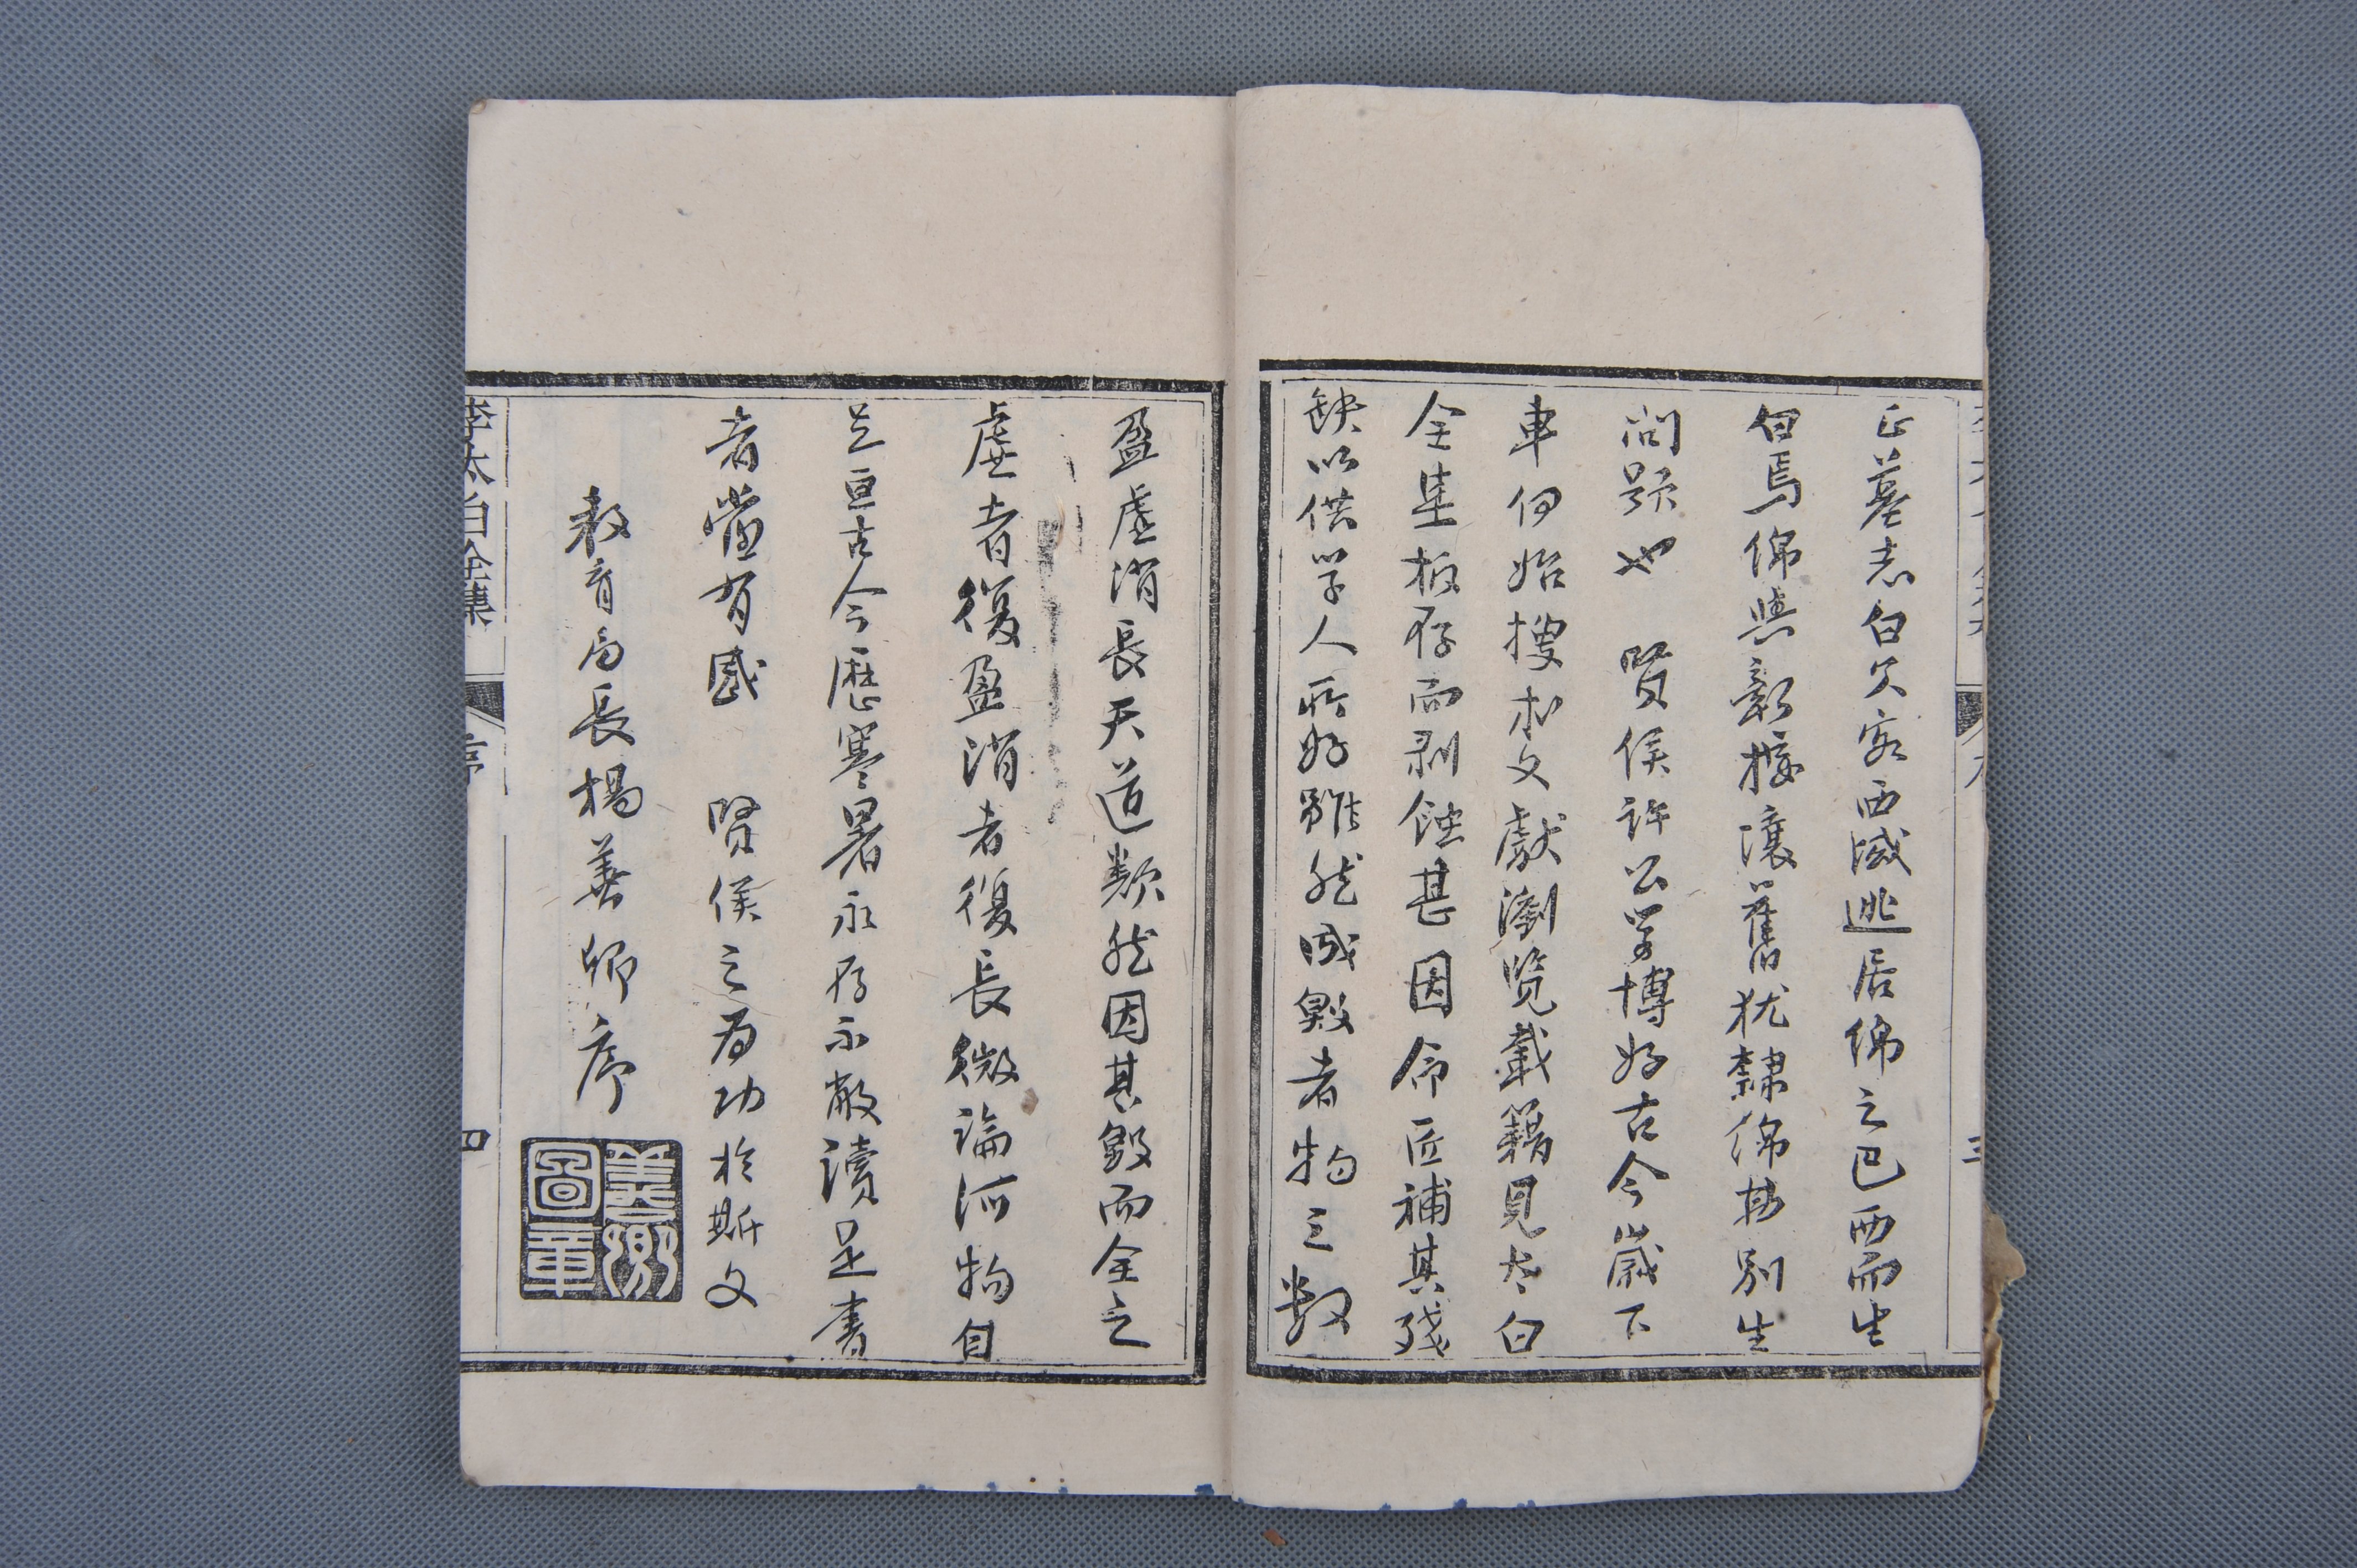 正墓志白父客西域逃居綿之巴西而生
白焉綿與彰接壤舊犹隸綿故別生
問题也　賢侯許公学博好古今歲下
車伊始搜求文獻瀏覽載籍見太白
全集板存而剥蝕甚因命匠補其殘
缺以供学人所好雖然成毀者物之数
盈虛消長天道類然因其毀而全之
虛者復盈消者復長微論河物自
是亘古今歷寒暑永存不敝讀是書
者當有感　賢侯之為功於斯文
教育局長楊善卿序
善卿圖章
李太白全集
序
四
三